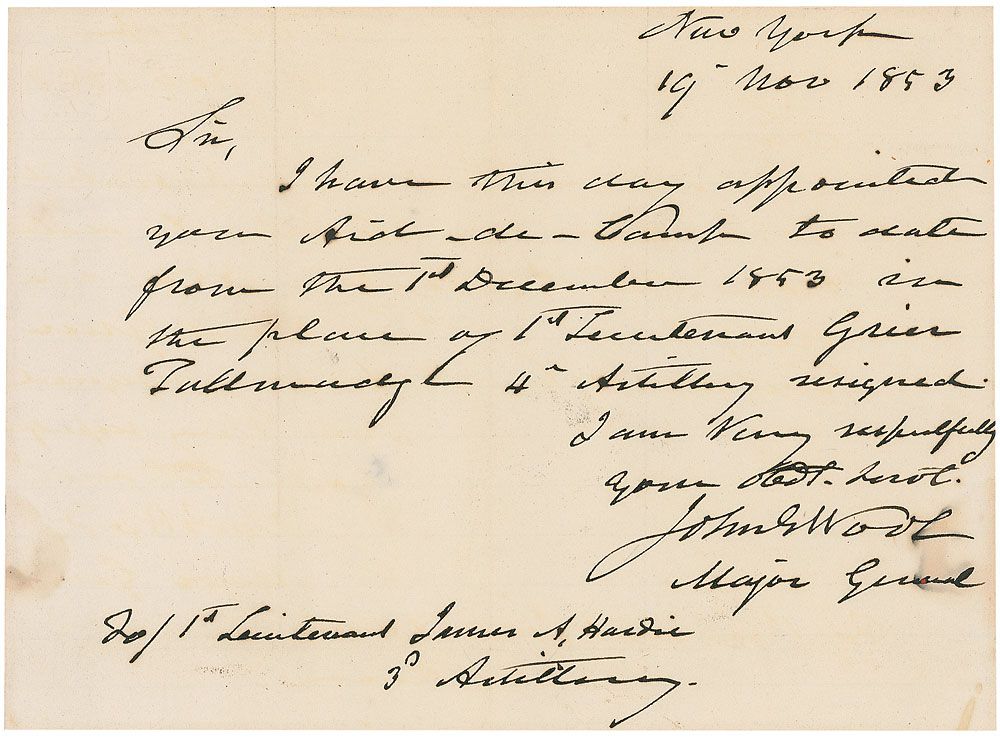 New York
19 Nov 1853
Sir,
I have this day appointed
you Aid-de-Camp to date
from the 1st December 1853 in
the place of 1st Lieutenant Grier
Tallmadge 4th Artillery resigned.
I am Very respectfully
Your Obdt. Servt.
John E Wool
Major General
To/ 1st Lieutenant James A. Hardie
3d Artillery.